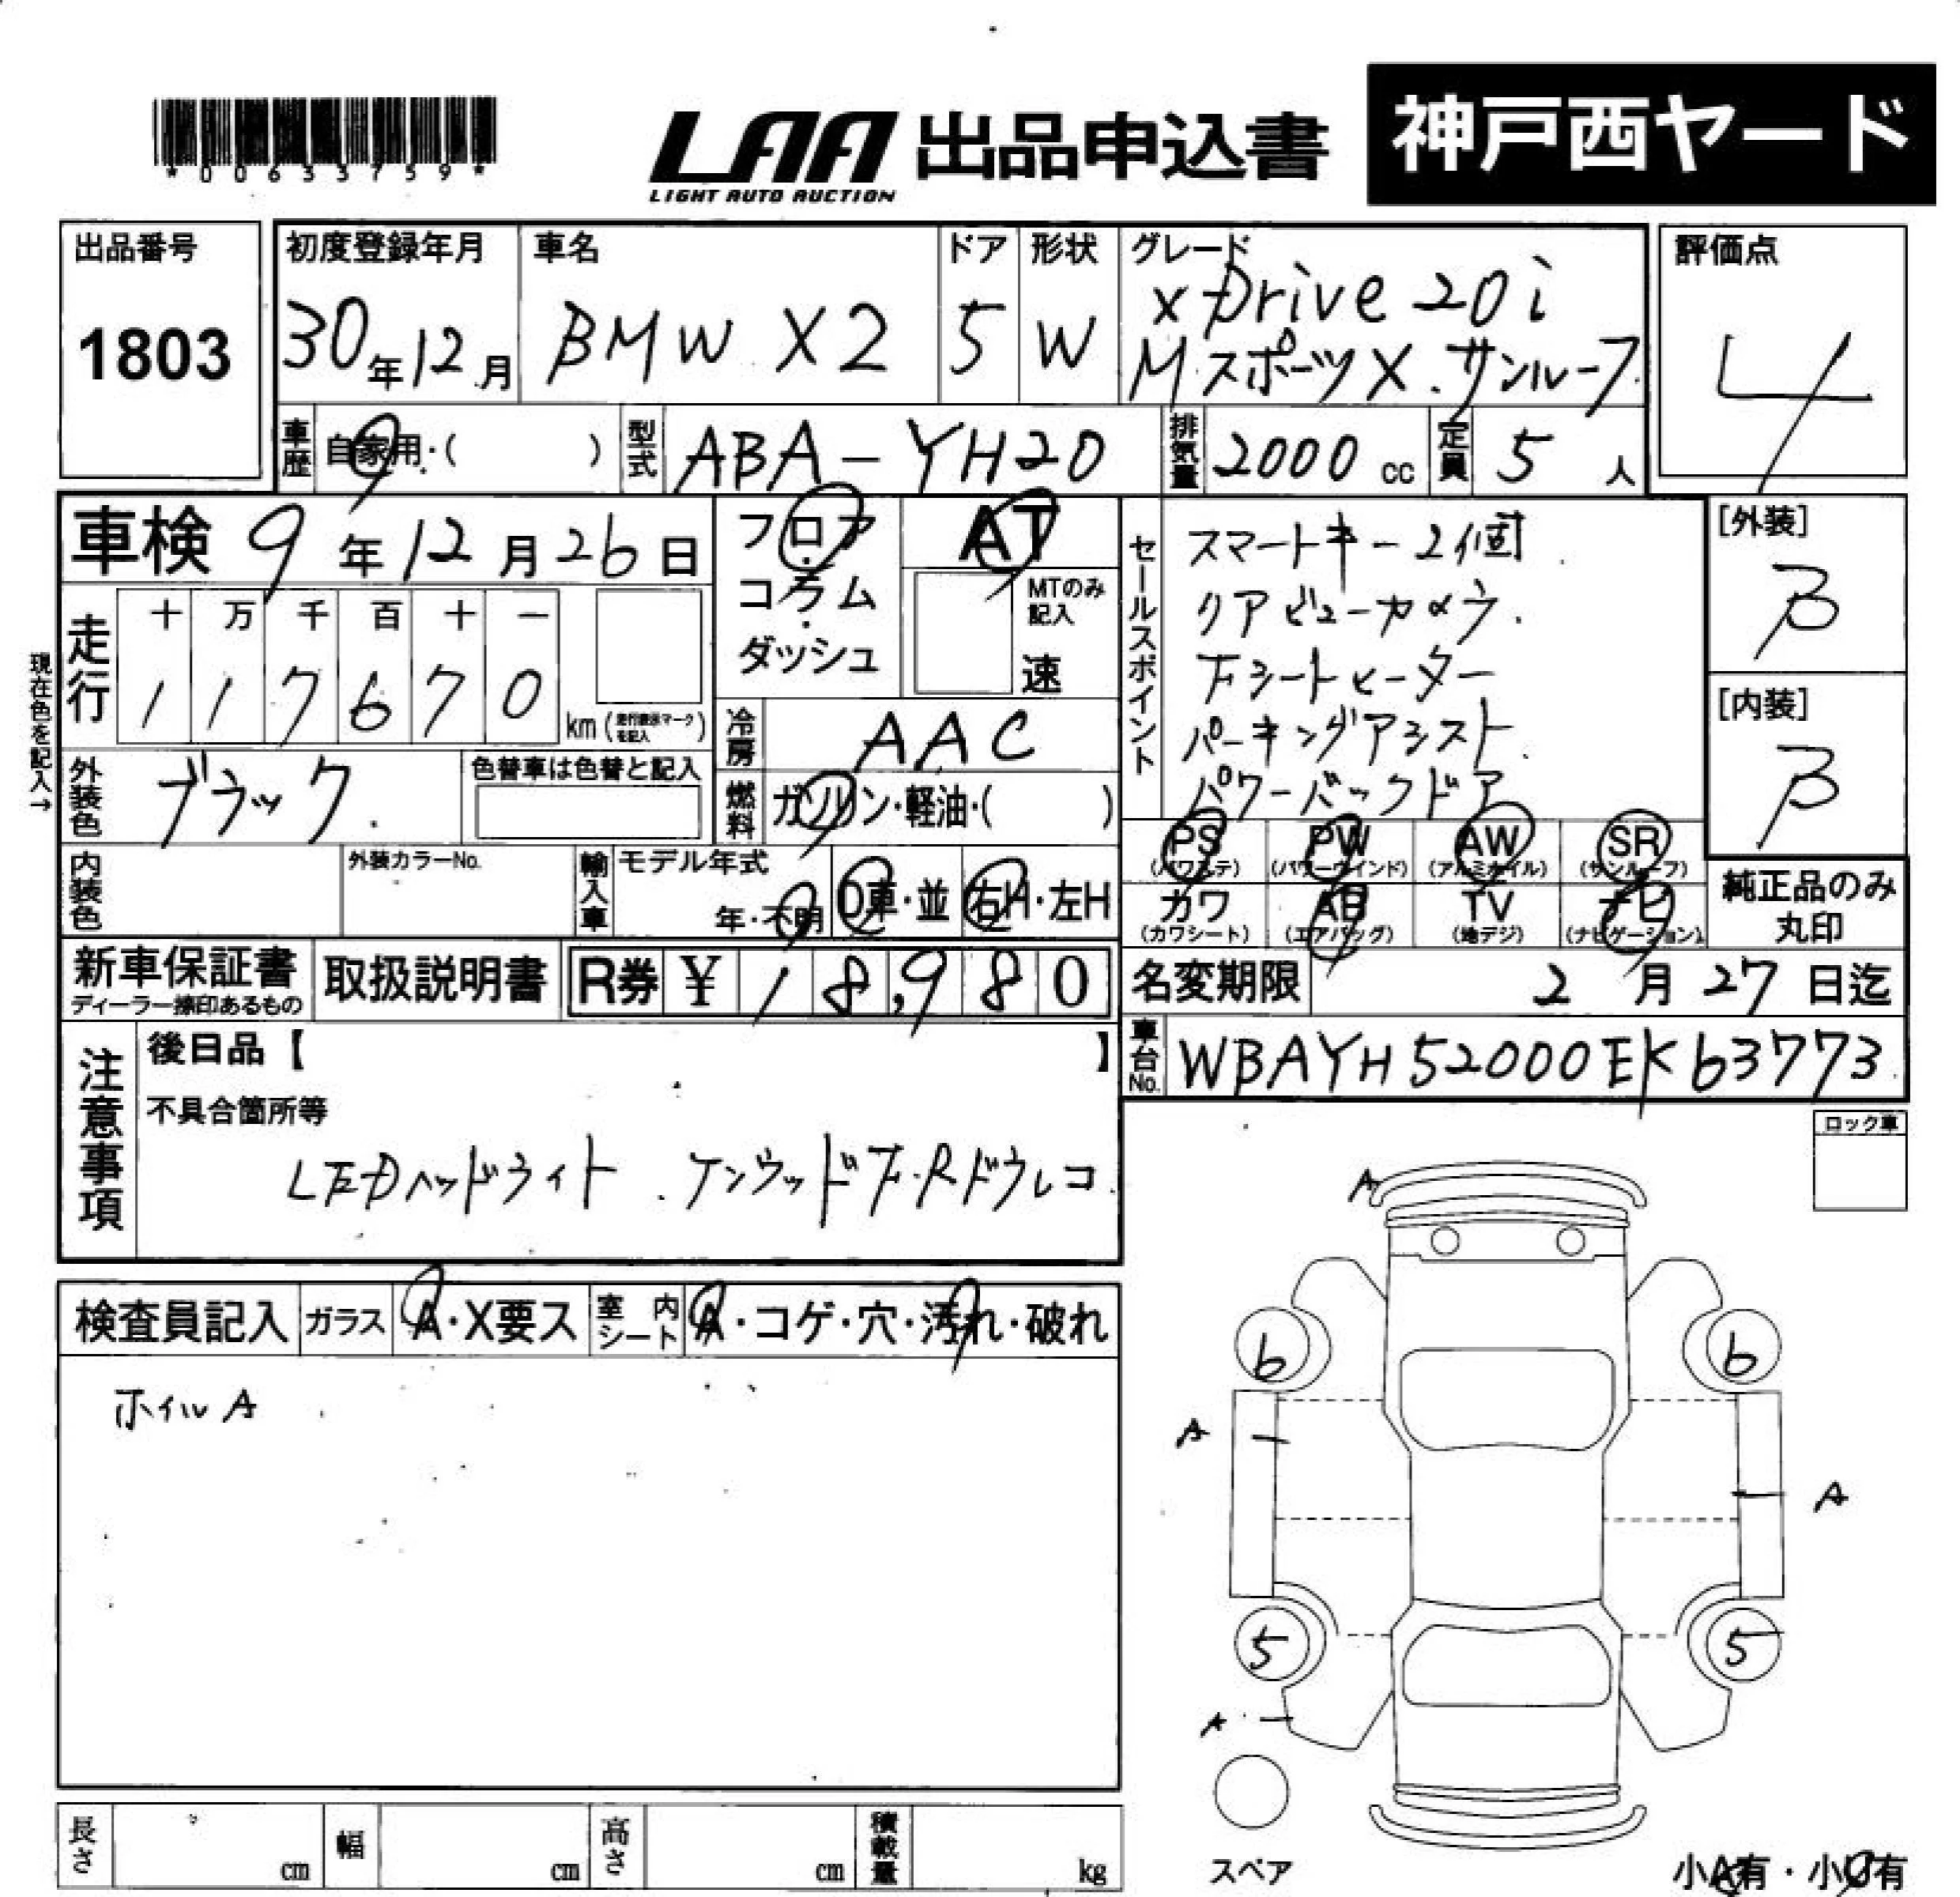 *00633759*
LAA 出品申込書 神戸西ヤード
LIGHT AUTO AUCTION
出品番号 1803
初度登録年月 30年12月
車名 BMW X2
ドア 5
形状 W
グレード xDrive 20i
Mスポーツ X.サンルーフ
評価点 4
車歴 自家用・( )
型式 ABA-YH20
排気量 2000 cc
定員 5 人
車検 9年12月26日
フロア・コラム・ダッシュ
AT
MTのみ記入
速
現在色を記入→
走行 十 万 千 百 十 一
1 1 7 6 7 0 km (走行表示マークを記入)
冷房 AAC
外装色 ブラック.
色替車は色替と記入
燃料 ガソリン・軽油・( )
内装色
外装カラーNo.
輸入車 モデル年式 年・不明
D車・並 右H・左H
セールスポイント スマートキー2個
リアビューカメラ.
Fシートヒーター
パーキングアシスト.
パワーバックドア
[外装] B
[内装] B
PS (パワステ) PW (パワーウインド) AW (アルミホイル) SR (サンルーフ)
カワ (カワシート) AB (エアバッグ) TV (地デジ) ナビ (ナビゲーション)
純正品のみ丸印
新車保証書 ディーラー捺印あるもの
取扱説明書
R券 ¥ 18,980
名変期限 2月27日迄
車台No. WBAYH52000EK63773
注意事項
後日品【 】
不具合箇所等
LEDヘッドライト.ケンウッドF.Rドラレコ.
ロック車
検査員記入 ガラス A・X要ス 室内シート A・コゲ・穴・汚れ・破れ
ホイルA
A
6 6
A
A
5 5
A
スペア
長さ cm 幅 cm 高さ cm 積載量 kg
小A有・小U有